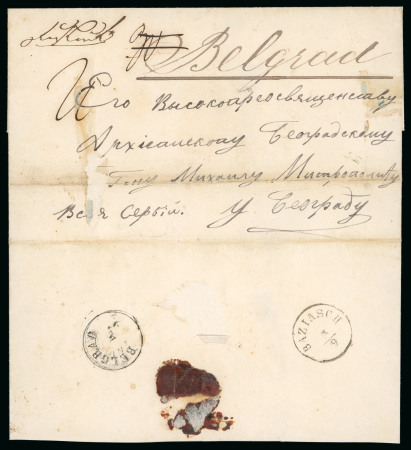 Belgrad
Его Высокопреосвященству
Архіепископу Београдскому
Гну Михаилу Митрополиту
Всея Сербіи. У Београду
BELGRAD
BAZIASCH